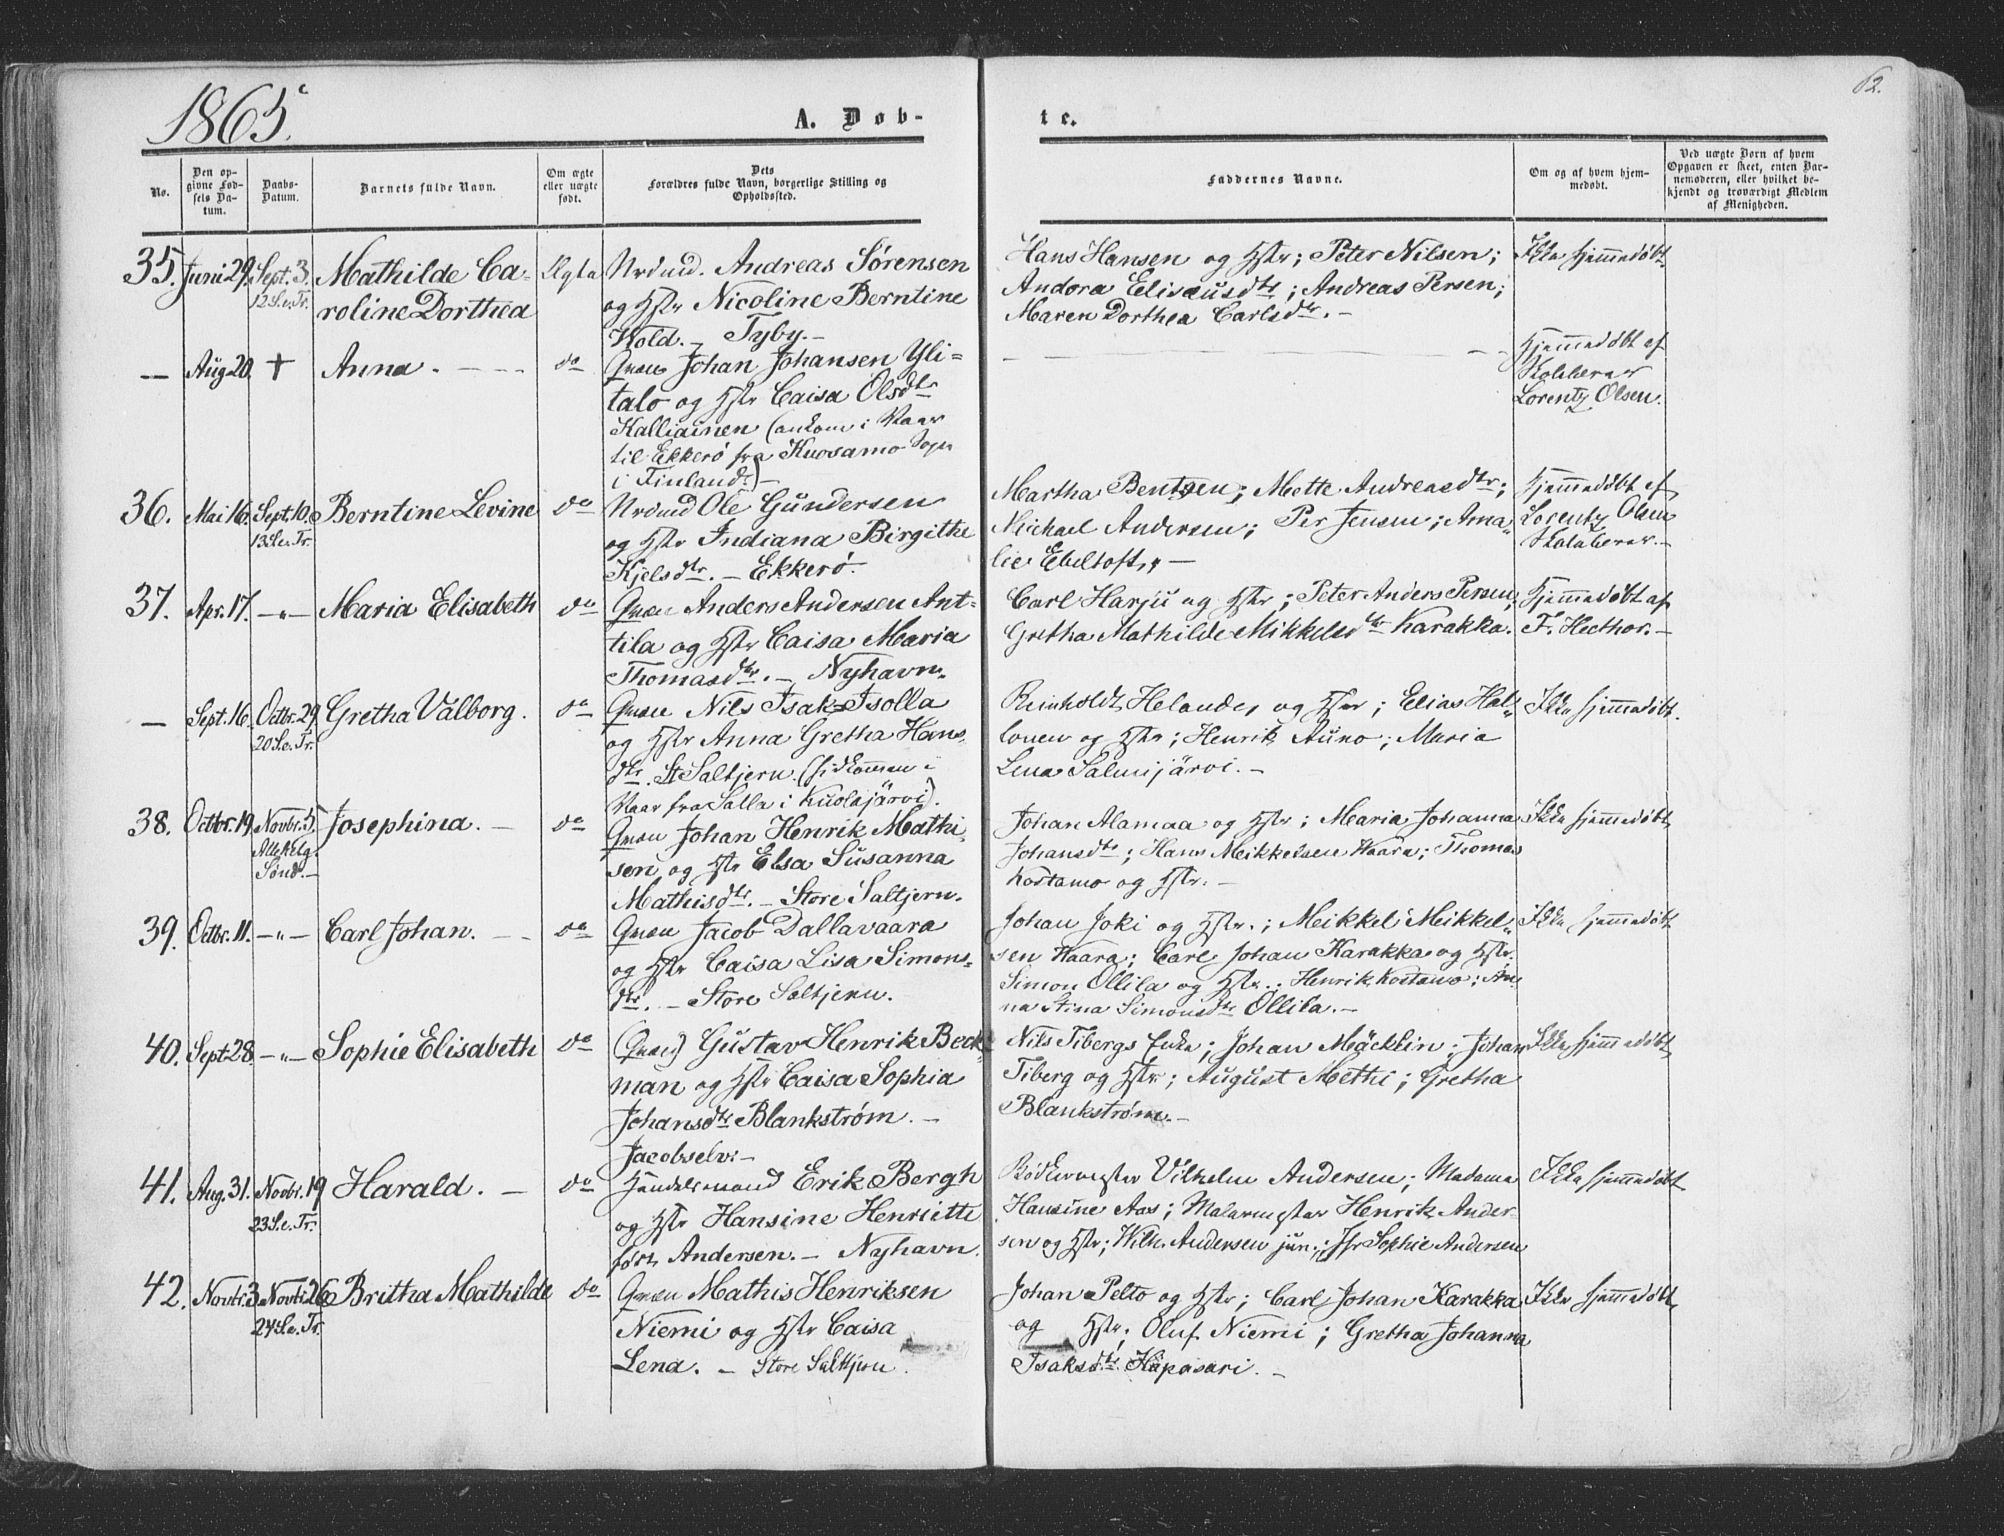 1865.
62.
A. Døb-
te.
No.
Den op-
givne Fød-
sels Da-
tum.
Daabs-
Datum.
Barnets fulde Navn.
Om ægte
eller uægte
født.
Dets
Forældres fulde Navn, borgerlige Stilling og
Opholdssted.
Faddernes Navne.
Om og af hvem hjem-
medøbt.
Ved uægte Børn af hvem
Opgaven er skeet, enten Bar-
nemoderen, eller hvilket be-
kjendt og troværdigt Medlem
af Menigheden.
35. Juni 29. Sept. 3. Mathilde Ca- Ægte Nrdmd. Andreas Sørensen
12 S.e.Tr. roline Dorthea og Hstr Nicoline Berntine
Wold. – Tyby. –
Hans Hansen og Hstr; Peter Nilsen;
Andora Elisæusdtr; Andreas Persen;
Maren Dorthea Carlsdtr. –
Ikke hjemmedøbt
— Aug. 20. + Anna. – do Qvæn Johan Johansen Yli-
talo og Hstr Caisa Olsdtr
Kalliainen (ankom i Vaar
til Ekkerø fra Kuosamo Sogn
i Finland.) –
Hjemmedøbt af
Kokkerar
Lorentz Olsen.
36. Mai 16. Sept. 10. Berntine Levine do Nrdmd Ole Gundersen
13 S.e.Tr. og Hstr Indiana Birgithe
Kjelsdtr. – Ekkerø.
Martha Bentsen; Mette Andreasdtr;
Michael Andersen; Per Jensen; Ama-
lie Ebeltoft. –
Hjemmedøbt af
Lorentz Olsen
37. Apr. 17. –"– Maria Elisabeth do Qvæn Anders Andersen Ant-
tila og Hstr Caisa Maria
Thomasdtr. – Nyhavn.
Carl Harju og Hstr; Peter Anders Persen;
Gretha Mathilde Mikkelsdtr Karakka.
Hjemmedøbt af
F. Hecthor. –
— Sept. 16. Octbr. 29. Gretha Valborg. do Qvæn Nils Isak Isolla
20 S.e.Tr. og Hstr Anna Gretha Hans-
dtr. St. Saltjern. (hidkommen i
Vaar fra Salla i Kuolajärvi).
Reinholdt Helander og Hstr; Elias Hal-
lonen og Hstr; Henrik Auno; Maria
Lena Salmijärvi. –
Ikke hjemmedøbt.
38. Octbr. 19. Novbr. 5. Josephina. – do Qvæn Johan Henrik Mathi-
Allehelg. sen og Hstr Elsa Susanna
Sønd. – Mathisdtr. – Store Saltjern.
Johan Alamaa og Hstr; Maria Johanna
Johansdtr; Hans Meikkelsen Kaara; Thomas
Kostamo og Hstr. –
Ikke hjemmedøbt
39. Octbr. 11. –"– Carl Johan. – do Qvæn Jacob Dallavaara
og Hstr Caisa Lisa Simons-
dtr. – Store Saltjern.
Johan Joki og Hstr.; Meikkel Meikkel-
sen Kaara; Carl Johan Karakka og Hstr.
Simon Ollila og Hstr.; Henrik Kostamo; An-
na Stina Simonsdtr Ollila. –
Ikke hjemmedøbt
40. Sept. 28. –"– Sophie Elisabeth do (Qvæn) Gustav Henrik Beck-
man og Hstr Caisa Sophia
Johansdtr Blankstrøm. –
Jacobselv. –
Nils Tibergs Enke; Johan Mäcklin; Johan
Tiberg og Hstr; August Methi; Gretha
Blankstrøm. –
Ikke hjemmedøbt
41. Aug. 31. Novbr. 19 Harald. – do Handelsmand Erik Bergh
23 S.e.Tr. og Hstr Hansine Henriette
født Andersen. – Nyhavn.
Bødkermester Vilhelm Andersen; Madame
Hansine Aas; Malermester Henrik Ander-
sen og Hstr; Wilh. Andersen jun.; Jfr Sophie Andersen
Ikke hjemmedøbt
42. Novbr. 3. Novbr. 26 Britha Mathilde do Qvæn Mathis Henriksen
24 S.e.Tr. Niemi og Hstr Caisa
Lena. – Store Saltjern.
Johan Pelto og Hstr; Carl Johan Karakka
og Hstr; Oluf Niemi; Gretha Johanna
Isaksdtr Häpäsari. –
Ikke hjemmedøbt